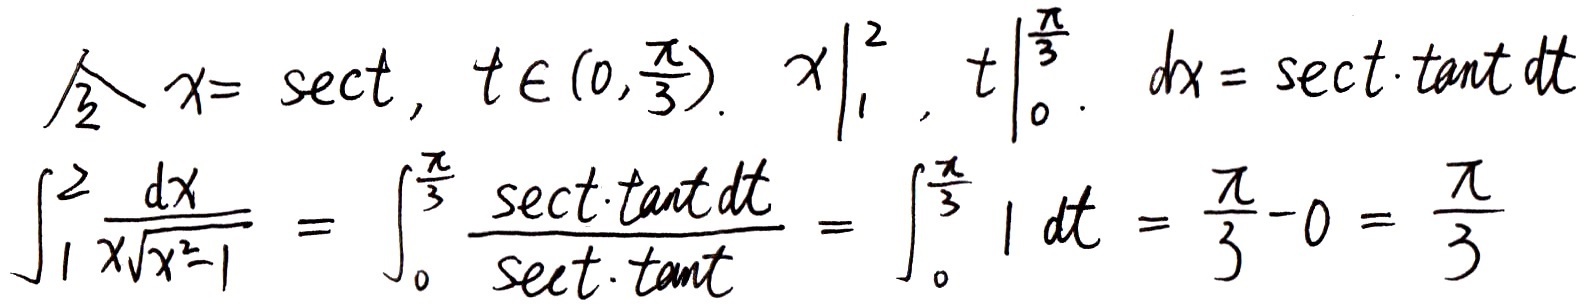 令 $x = \sec t$, $t \in (0, \frac{\pi}{3})$. $x \big|_1^2$, $t \big|_0^{\frac{\pi}{3}}$. $dx = \sec t \cdot \tan t \, dt$
$\int_1^2 \frac{dx}{x\sqrt{x^2-1}} = \int_0^{\frac{\pi}{3}} \frac{\sec t \cdot \tan t \, dt}{\sec t \cdot \tan t} = \int_0^{\frac{\pi}{3}} 1 \, dt = \frac{\pi}{3} - 0 = \frac{\pi}{3}$